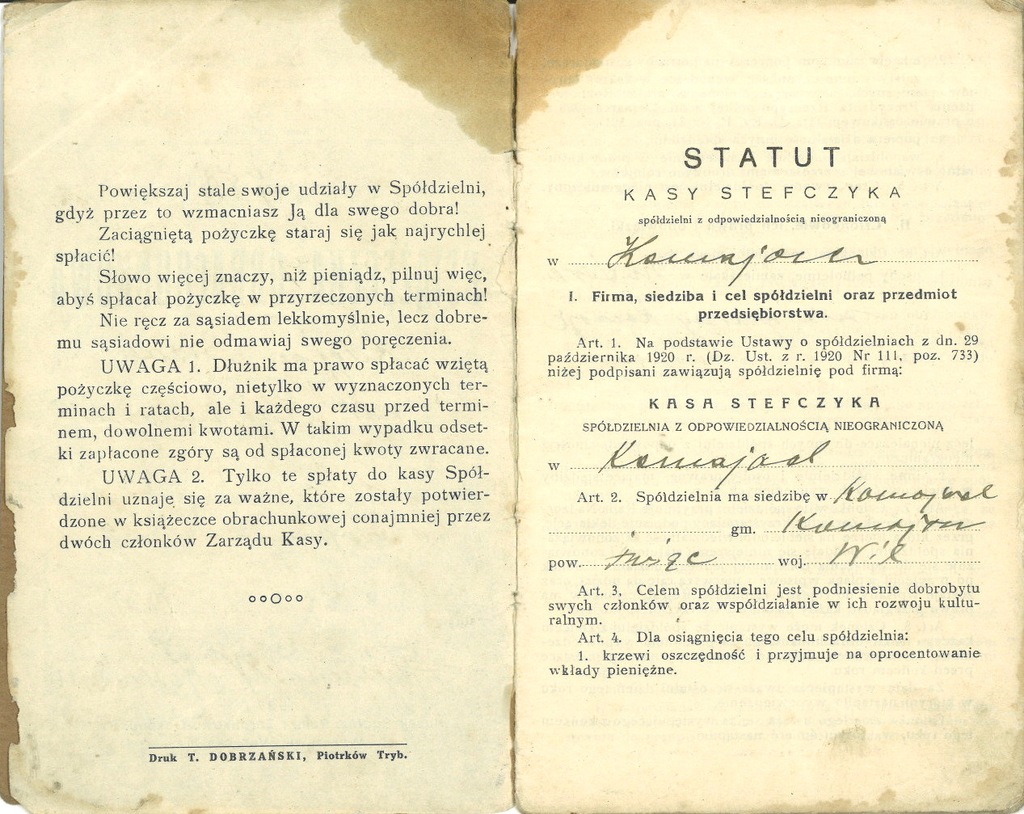 Powiększaj stale swoje udziały w Spółdzielni,
gdyż przez to wzmacniasz Ją dla swego dobra!
Zaciągniętą pożyczkę staraj się jak najrychlej
spłacić!
Słowo więcej znaczy, niż pieniądz, pilnuj więc,
abyś spłacał pożyczkę w przyrzeczonych terminach!
Nie ręcz za sąsiadem lekkomyślnie, lecz dobre-
mu sąsiadowi nie odmawiaj swego poręczenia.
UWAGA 1. Dłużnik ma prawo spłacać wziętą
pożyczkę częściowo, nietylko w wyznaczonych ter-
minach i ratach, ale i każdego czasu przed termi-
nem, dowolnemi kwotami. W takim wypadku odset-
ki zapłacone zgóry są od spłaconej kwoty zwracane.
UWAGA 2. Tylko te spłaty do kasy Spół-
dzielni uznaje się za ważne, które zostały potwier-
dzone w książeczce obrachunkowej conajmniej przez
dwóch członków Zarządu Kasy.
Druk T. DOBRZAŃSKI, Piotrków Tryb.
STATUT
KASY STEFCZYKA
spółdzielni z odpowiedzialnością nieograniczoną
w Komajach
I. Firma, siedziba i cel spółdzielni oraz przedmiot
przedsiębiorstwa.
Art. 1. Na podstawie Ustawy o spółdzielniach z dn. 29
października 1920 r. (Dz. Ust. z r. 1920 Nr 111, poz. 733)
niżej podpisani zawiązują spółdzielnię pod firmą:
KASA STEFCZYKA
SPÓŁDZIELNIA Z ODPOWIEDZIALNOŚCIĄ NIEOGRANICZONĄ
w Komajach
Art. 2. Spółdzielnia ma siedzibę w Komajach
gm.
pow. woj. Wil
Art. 3. Celem spółdzielni jest podniesienie dobrobytu
swych członków oraz współdziałanie w ich rozwoju kultu-
ralnym.
Art. 4. Dla osiągnięcia tego celu spółdzielnia:
1. krzewi oszczędność i przyjmuje na oprocentowanie
wkłady pieniężne.